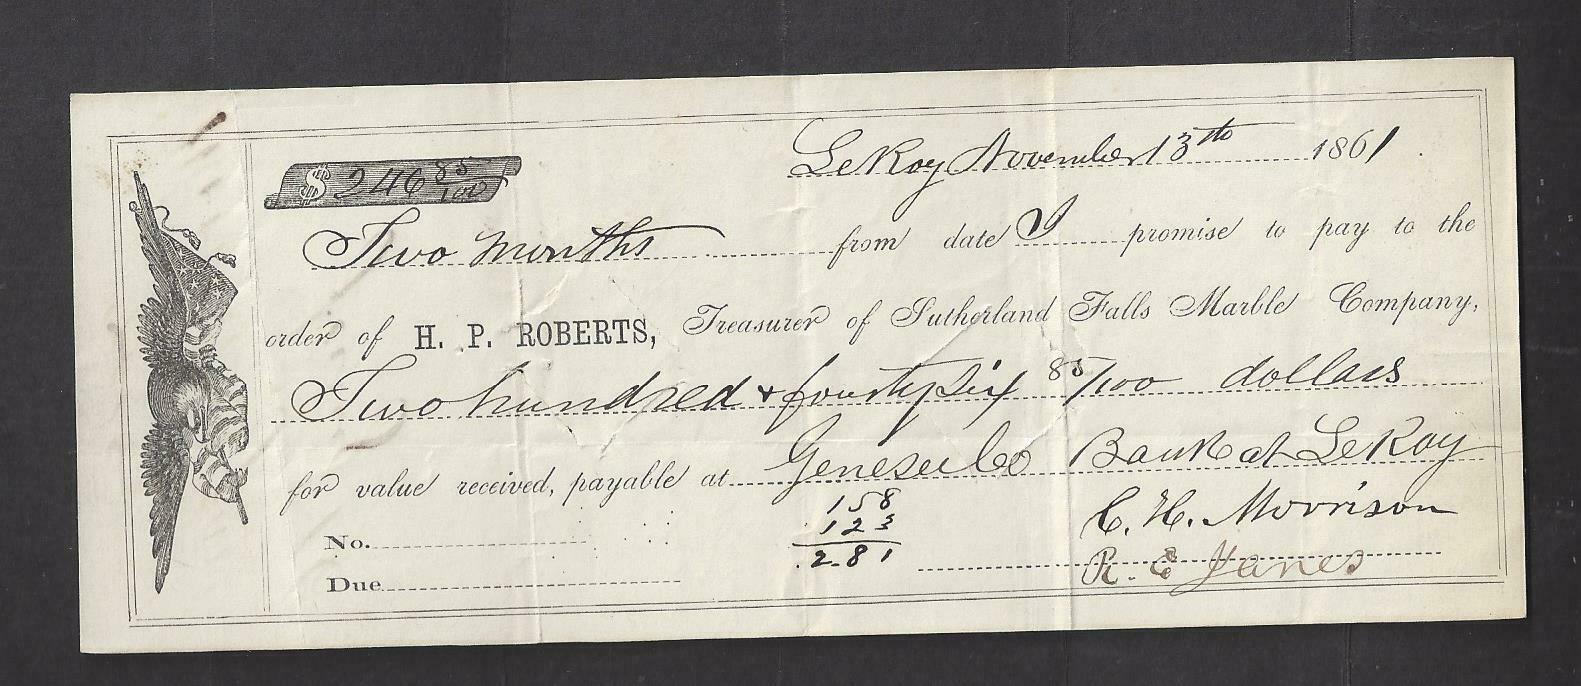 LeRoy November 13th 1861
$ 246 85/100
Two months from date I promise to pay to the
order of H. P. ROBERTS, Treasurer of Sutherland Falls Marble Company,
Two hundred & fourtysix 85/100 dollars
for value received, payable at Genesee Co Bank at LeRoy
158
123
2.81
No.
C. H. Morrison
Due
R. E. Janes